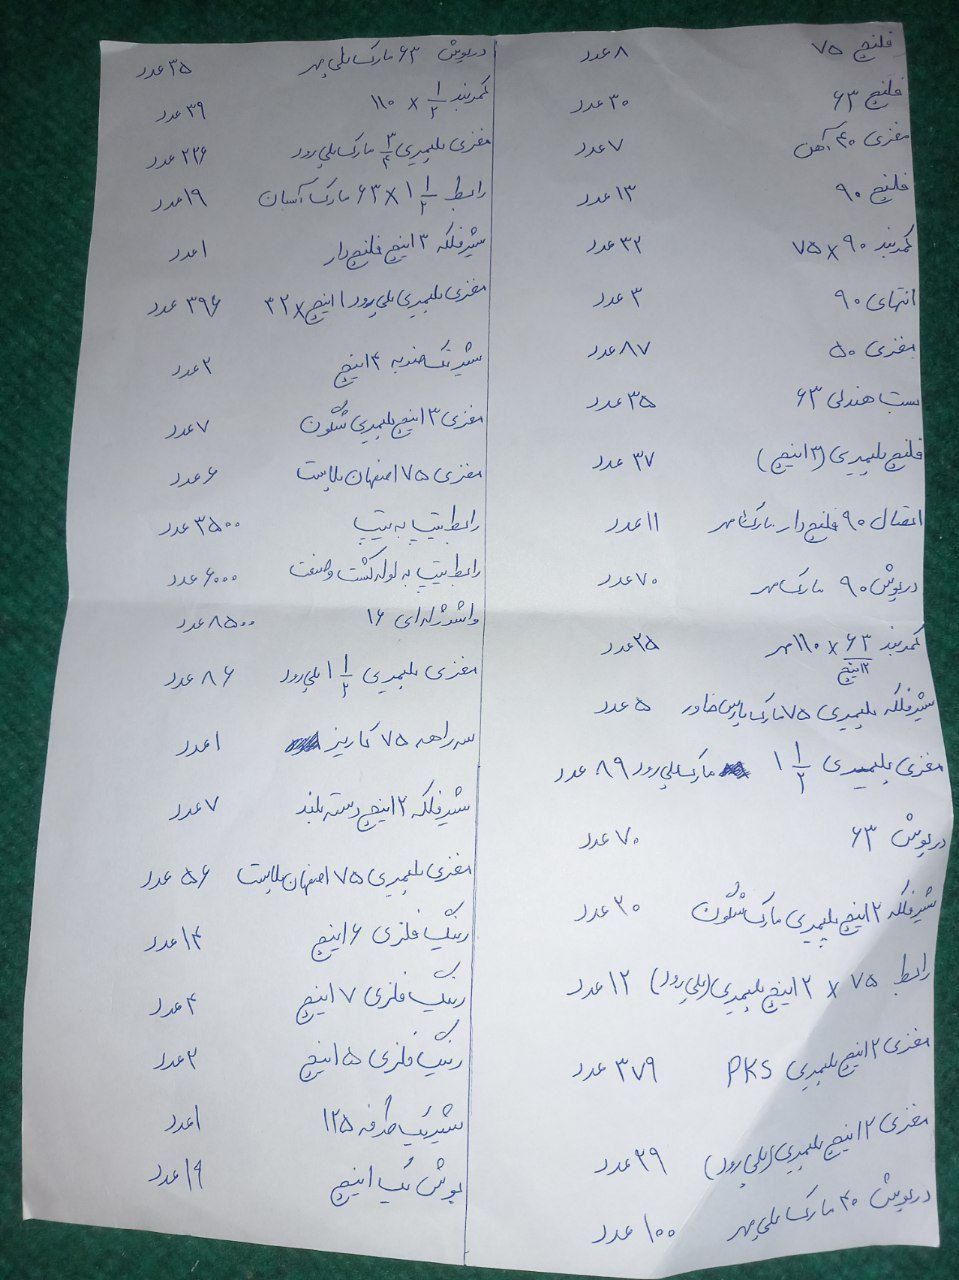 فلنج ۷۵ ۸ عدد
فلنج ۶۳ ۳۰ عدد
مغزی ۴۰ آهن ۷ عدد
فلنج ۹۰ ۱۳ عدد
کمربند ۹۰ × ۷۵ ۳۲ عدد
انتهای ۹۰ ۳ عدد
مغزی ۵۰ ۸۷ عدد
بست هندلی ۶۳ ۳۵ عدد
فلنج پلیمری (۳ اینچ) ۳۷ عدد
اتصال ۹۰ فلنج دار مارک مهر ۱۱ عدد
درپوش ۹۰ مارک مهر ۷۰ عدد
کمربند ۶۳ × ۱۱۰ مهر ۲۵ عدد
۲ اینچ
شیرفلکه پلیمری ۷۵ مارک پارس خاور ۵ عدد
مغزی پلیمری ۱ ۱/۲ مارک پلی رود ۸۹ عدد
درپوش ۶۳ ۷۰ عدد
شیرفلکه ۲ اینچ پلیمری مارک نیگون ۳۰ عدد
رابط ۷۵ × ۲ اینچ پلیمری (پلی رود) ۱۲ عدد
مغزی ۲ اینچ پلیمری PKS ۳۷۹ عدد
مغزی ۲ اینچ پلیمری (پلی رود) ۳۹ عدد
درپوش ۴۰ مارک پلی مهر ۱۰۰ عدد
درپوش ۶۳ مارک پلی مهر ۳۵ عدد
کمربند ۱/۲ × ۱۱۰ ۳۹ عدد
مغزی پلیمری ۳/۴ مارک پلی رود ۲۲۶ عدد
رابط ۱ ۱/۲ × ۶۳ مارک آسان ۱۹ عدد
شیرفلکه ۳ اینچ فلنج دار ۱ عدد
مغزی پلیمری پلی رود ۱ اینچ × ۳۲ ۳۹۶ عدد
شیر تک ضربه ۴ اینچ ۲ عدد
مغزی ۳ اینچ پلیمری نیگون ۷ عدد
مغزی ۷۵ اصفهان پلاست ۶ عدد
رابط تیپ به تیپ ۳۵۰۰ عدد
رابط تیپ به لوله کشت و صنعت ۶۰۰۰ عدد
واشر ژله ای ۱۶ ۸۵۰۰ عدد
مغزی پلیمری ۱ ۱/۲ پلی رود ۸۶ عدد
سه راهه ۷۵ کاریز ۱ عدد
شیرفلکه ۲ اینچ دسته بلند ۷ عدد
مغزی پلیمری ۷۵ اصفهان پلاست ۵۶ عدد
رینگ فلزی ۶ اینچ ۱۴ عدد
رینگ فلزی ۷ اینچ ۴ عدد
رینگ فلزی ۵ اینچ ۲ عدد
شیر یک طرفه ۱۲۵ ۱ عدد
بوش یک اینچ ۱۹ عدد